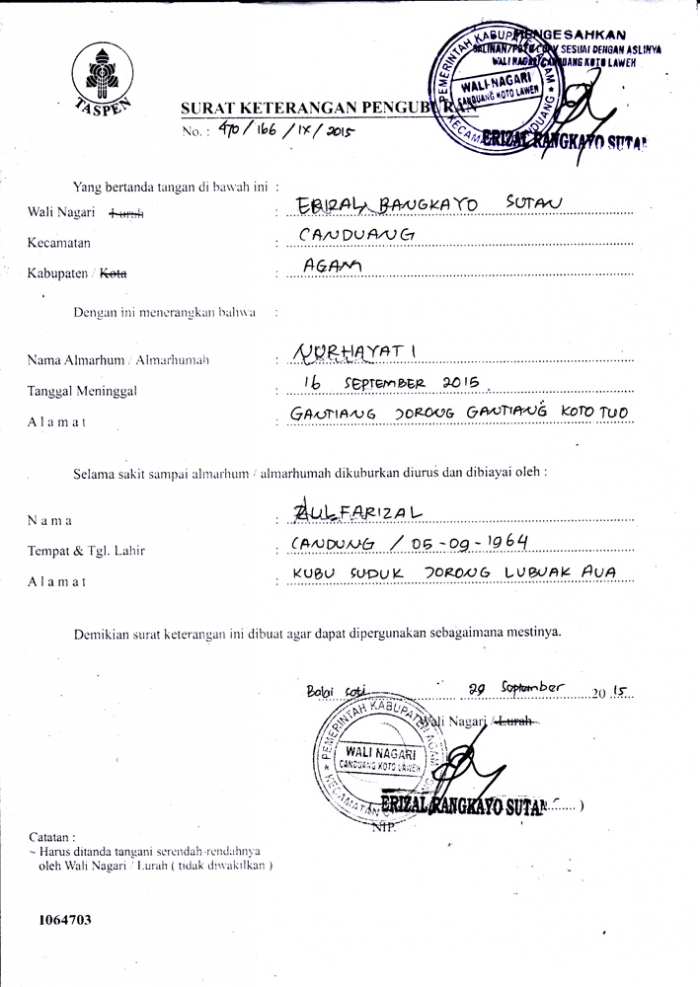 TASPEN
MENGESAHKAN
SALINAN/FOTO COPY SESUAI DENGAN ASLINYA
WALI NAGARI CANDUANG KOTO LAWEH
PEMERINTAH KABUPATEN AGAM
WALI NAGARI
CANDUANG KOTO LAWEH
KECAMATAN CANDUANG
ERIZAL RANGKAYO SUTAN
SURAT KETERANGAN PENGUBURAN
No. : 470/166/IX/2015
Yang bertanda tangan di bawah ini :
Wali Nagari Lurah : ERIZAL BANGKAYO SUTAN
Kecamatan : CANDUANG
Kabupaten / Kota : AGAM
Dengan ini menerangkan bahwa :
Nama Almarhum / Almarhumah : NURHAYATI
Tanggal Meninggal : 16 SEPTEMBER 2015
Alamat : GANTIANG JORONG GANTIANG KOTO TUO
Selama sakit sampai almarhum / almarhumah dikuburkan diurus dan dibiayai oleh :
Nama : ZULFARIZAL
Tempat & Tgl. Lahir : CANDUNG / 05-09-1964
Alamat : KUBU SUDUK JORONG LUBUAK AUA
Demikian surat keterangan ini dibuat agar dapat dipergunakan sebagaimana mestinya.
29 September 2015
Wali Nagari / Lurah
PEMERINTAH KABUPATEN AGAM
WALI NAGARI
CANDUANG KOTO LAWEH
ERIZAL RANGKAYO SUTAN )
NIP.
Catatan :
~ Harus ditanda tangani serendah-rendahnya
oleh Wali Nagari / Lurah ( tidak diwakilkan )
1064703